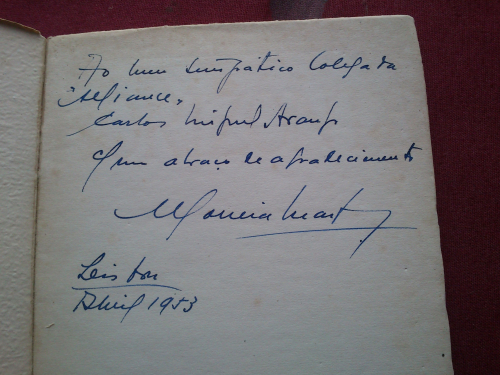 Ao meu simpático Colega da
"Alliance",
Carlos Miguel Araujo
C/ um abraço de agradecimento
Moreira
Lisboa
Abril 1953